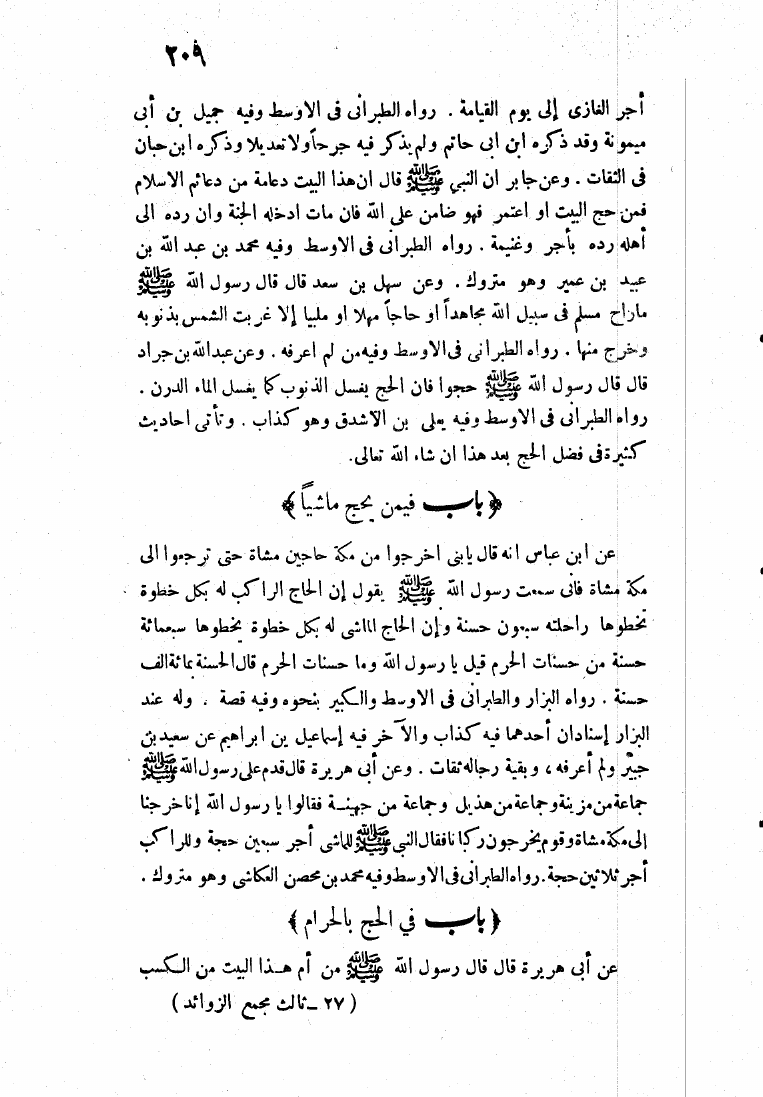 ٢٠٩
أجر الغازى إلى يوم القيامة . رواه الطبرانى فى الاوسط وفيه جميل بن أبى
ميمونة وقد ذكره ابن ابى حاتم ولم يذكر فيه جرحاً ولا تعديلا وذكره ابن حبان
فى الثقات . وعن جابر ان النبي ﷺ قال ان هذا البيت دعامة من دعائم الاسلام
فمن حج البيت او اعتمر فهو ضامن على الله فان مات ادخله الجنة وان رده الى
أهله رده بأجر وغنيمة . رواه الطبرانى فى الاوسط وفيه محمد بن عبد الله بن
عبيد بن عمير وهو متروك . وعن سهل بن سعد قال قال رسول الله ﷺ
ماراح مسلم فى سبيل الله مجاهداً او حاجاً مهلا او ملبيا إلا غربت الشمس بذنوبه
وخرج منها . رواه الطبرانى فى الاوسط وفيه من لم اعرفه . وعن عبد الله بن جراد
قال قال رسول الله ﷺ حجوا فان الحج يغسل الذنوب كما يغسل الماء الدرن .
رواه الطبرانى فى الاوسط وفيه يعلى بن الاشدق وهو كذاب . وتأتى احاديث
كثيرة فى فضل الحج بعد هذا ان شاء الله تعالى.
﴿ باب فيمن يحج ماشياً ﴾
عن ابن عباس انه قال يابنى اخرجوا من مكة حاجين مشاة حتى ترجعوا الى
مكة مشاة فانى سمعت رسول الله ﷺ يقول إن الحاج الراكب له بكل خطوة
تخطوها راحلته سبعون حسنة وإن الحاج الماشى له بكل خطوة يخطوها سبعمائة
حسنة من حسنات الحرم قيل يا رسول الله وما حسنات الحرم قال الحسنة بمائة الف
حسنة . رواه البزار والطبرانى فى الاوسط والكبير بنحوه وفيه قصة . وله عند
البزار إسنادان أحدهما فيه كذاب والآخر فيه إسماعيل بن ابراهيم عن سعيد بن
جبير ولم أعرفه ، وبقية رجاله ثقات . وعن أبى هريرة قال قدم على رسول الله ﷺ
جماعة من مزينة وجماعة من هذيل وجماعة من جهينة فقالوا يا رسول الله إنا خرجنا
إلى مكة مشاة وقوم يخرجون ركبانا فقال النبي ﷺ للماشى أجر سبعين حجة وللراكب
أجر ثلاثين حجة . رواه الطبرانى فى الاوسط وفيه محمد بن محصن العكاشى وهو متروك .
﴿ باب في الحج بالحرام ﴾
عن أبى هريرة قال قال رسول الله ﷺ من أم هذا البيت من الكسب
( ٢٧ – ثالث مجمع الزوائد )